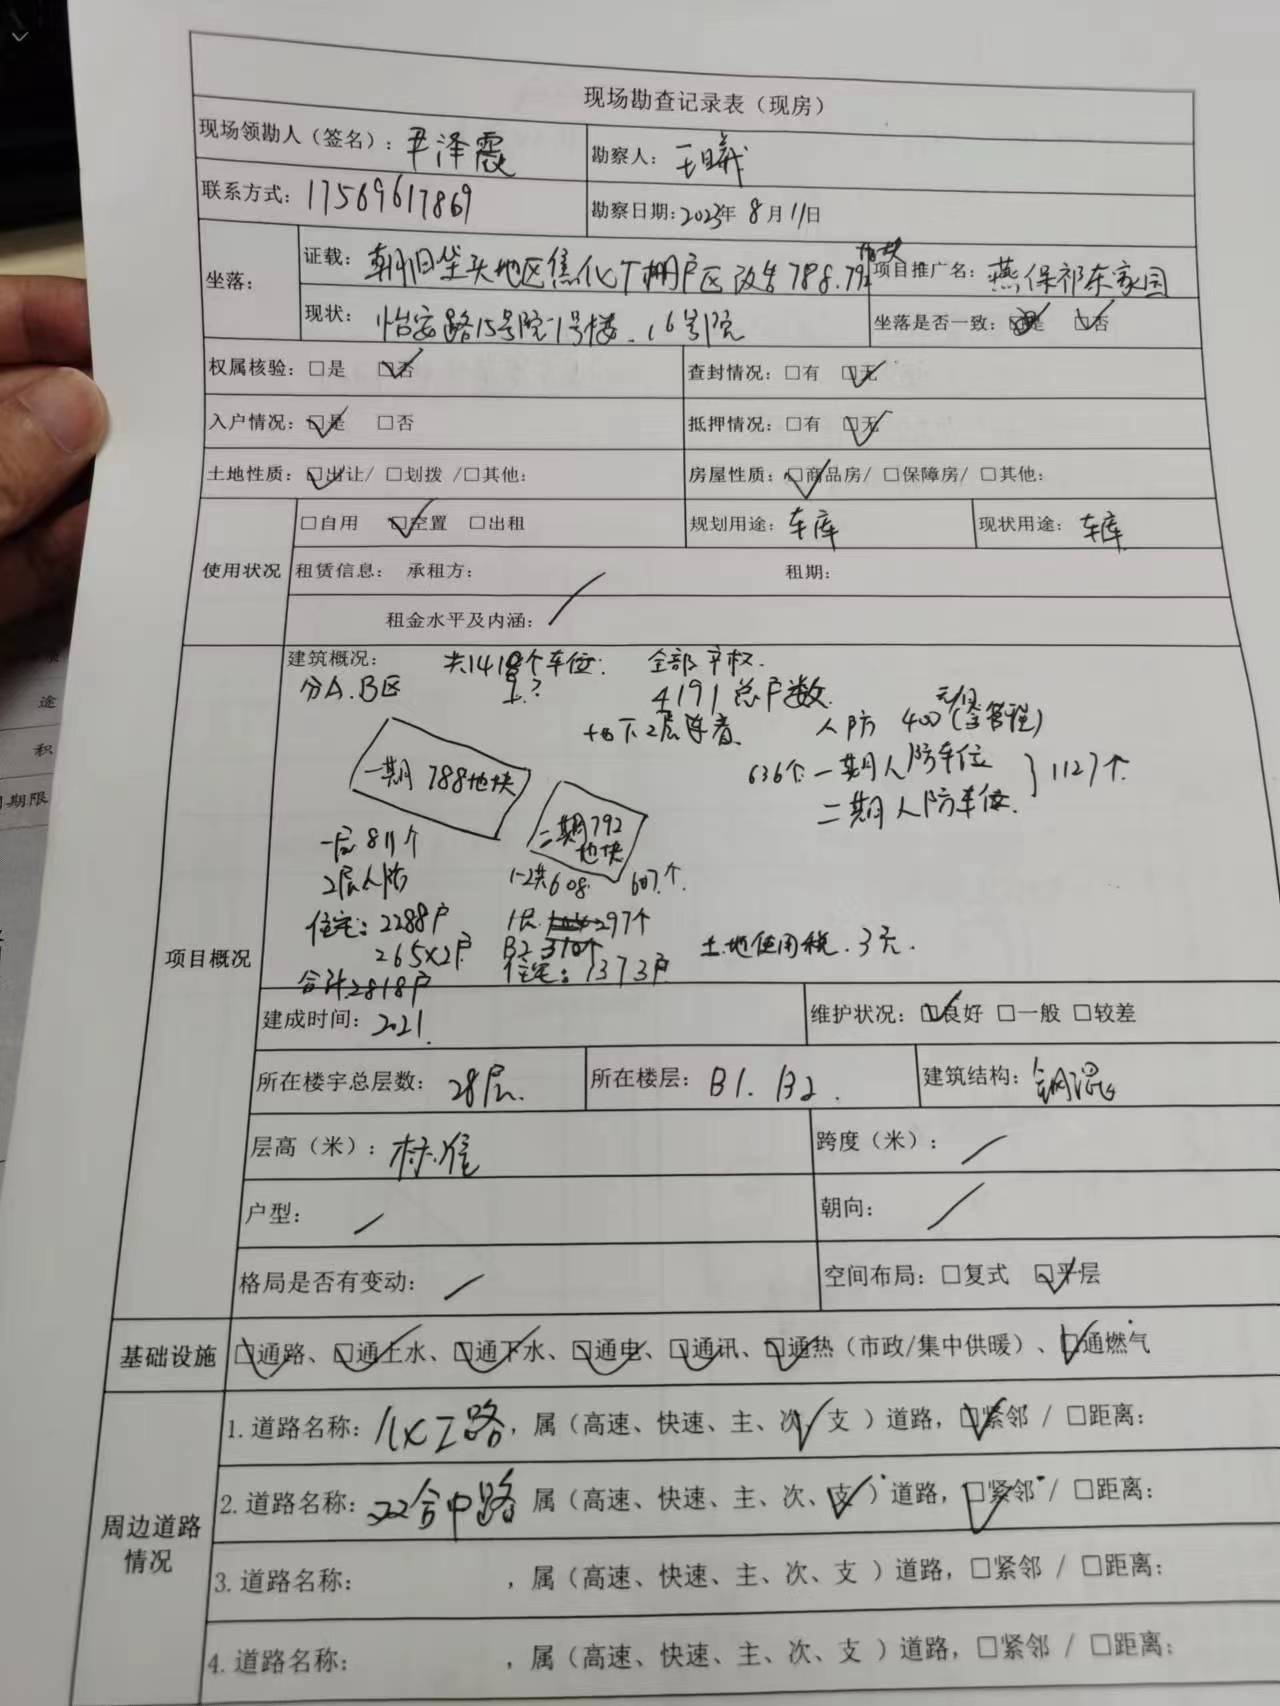 现场勘查记录表（现房）
现场领勘人（签名）：尹泽霞 勘察人：王曦
联系方式：17569617869 勘察日期：2023年 8月11日
坐落： 证载：朝阳垡头地区焦化厂棚户区改造788.792地块 项目推广名：燕保祁东家园
现状：怡安路15号院1号楼.16号院 坐落是否一致：□是 ☑否
权属核验：□是 ☑否 查封情况：□有 ☑无
入户情况：☑是 □否 抵押情况：□有 ☑无
土地性质：☑出让/ □划拨 /□其他： 房屋性质：☑商品房/ □保障房/ □其他：
使用状况 □自用 ☑空置 □出租 规划用途：车库 现状用途：车库
租赁信息： 承租方： 租期：
租金水平及内涵：/
项目概况
建筑概况： 共1418个车位. 全部产权.
分A.B区 ? 4191总户数
地下2层 人防 400元/月
636个 一期人防车位 } 1127个
一期 788地块 二期人防车位
二期792地块
一层 811个
2层人防 1-2共608 607个.
住宅：2288户 1层 297个
265×2户 B2 310个 土地使用税.3元.
合计2818户 住宅：1373户
建成时间：2021. 维护状况：☑良好 □一般 □较差
所在楼宇总层数：28层. 所在楼层：B1. B2. 建筑结构：钢混
层高（米）：标准 跨度（米）：/
户型：/ 朝向：/
格局是否有变动：/ 空间布局：□复式 ☑平层
基础设施 ☑通路、☑通上水、☑通下水、☑通电、☑通讯、☑通热（市政/集中供暖）、☑通燃气
周边道路情况
1.道路名称：化工路，属（高速、快速、主、次✓支 ）道路，☑紧邻 / □距离：
2.道路名称：双合中路 属（高速、快速、主、次、支✓）道路，☑紧邻 / □距离：
3.道路名称： ，属（高速、快速、主、次、支 ）道路，□紧邻 / □距离：
4.道路名称： ，属（高速、快速、主、次、支 ）道路，□紧邻 / □距离：
途
积
期限